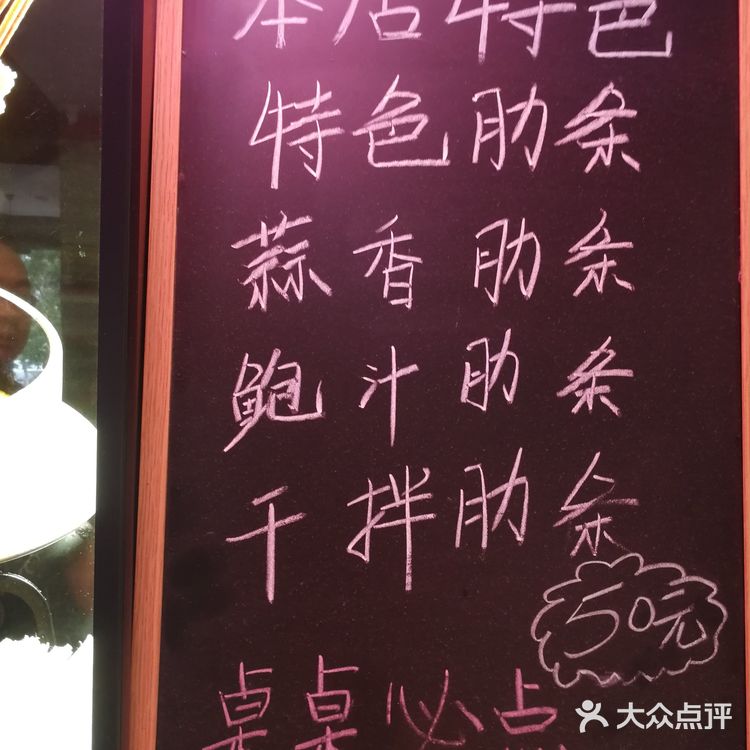 本店特色
特色肋条
蒜香肋条
鲍汁肋条
干拌肋条
50元
桌桌必点
大众点评